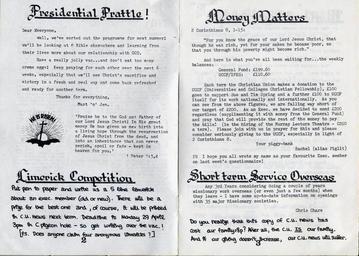 Presidential Prattle!
Dear Everyone,
Well, we've sorted out the programme for next summer!
we'll be looking at O.T. Bible characters and learning from
their lives more about our relationships with GOD.
Have a really jolly vac...and don't eat too many
creme eggs! Keep praying for each other over the next 4
weeks, especially that we'll see Christ's sacrifice and
victory in a fresh and real way and come back refreshed
and ready for another term.
Thanks for everything,
"Praise be to the God and Father of
our Lord Jesus Christ! In His great
mercy He has given us new birth into
a living hope through the resurrection
of Jesus Christ from the dead, and
into an inheritance that can never
perish, spoil or fade - kept in
heaven for you."
1 Peter 1:3,4
HE IS RISEN!
Limerick Competition
Put pen to paper and write us a 5 line limerick
about an exec. member (old or new). There will be a
prize for the best one and, of course, it will be printed
in C.U. news next term. Deadline is Monday 29 April
3pm in C pigeon hole - so get writing over the vac!
[P.S. Does anyone care for anonymous limericks?]
2
Money Matters
2 Corinthians 8, 1-15:
"For you know the grace of our Lord Jesus Christ, that
though he was rich, yet for your sakes he became poor, so
that you through his poverty might become rich."
And here is what you've all been waiting for...the weekly
balances:
General Fund: £199.60
UCCF/IFES: £110.60
Each term the Christian Union makes a donation to the
UCCF (Universities and Colleges Christian Fellowship), £100
goes to support and a further £100 to UCCF
itself for its work nationally and internationally. As you
can see from the above figures, we are falling way short of
our target. Each term, in order to survive, we need £200
regardless (supplementing it with money from the General Fund)
and pray that God will provide the rest of the money to pay
the bills (e.g. hiring of the Murray Lecture Theatre - £200
a term). Please join with us in prayer for this and please
consider seriously giving to the UCCF, especially in light of
2 Corinthians 8.
Your piggy-bank
Rachel (alias Piglit)
PS I hope you all wrote my name as your favourite Exec. member
on last week's questionnaire!
Short term Service Overseas
Any 3rd Years considering doing a couple of years
missionary work overseas (or even just a few months) when
they leave - I have some up-to-date information on openings
with 35 major Missionary societies.
Chris Chare
Do you realise that this copy of C.U. news has
cost our family 5p? After all, the C.U. IS our family.
And if our giving doesn't increase, our C.U. news will suffer.